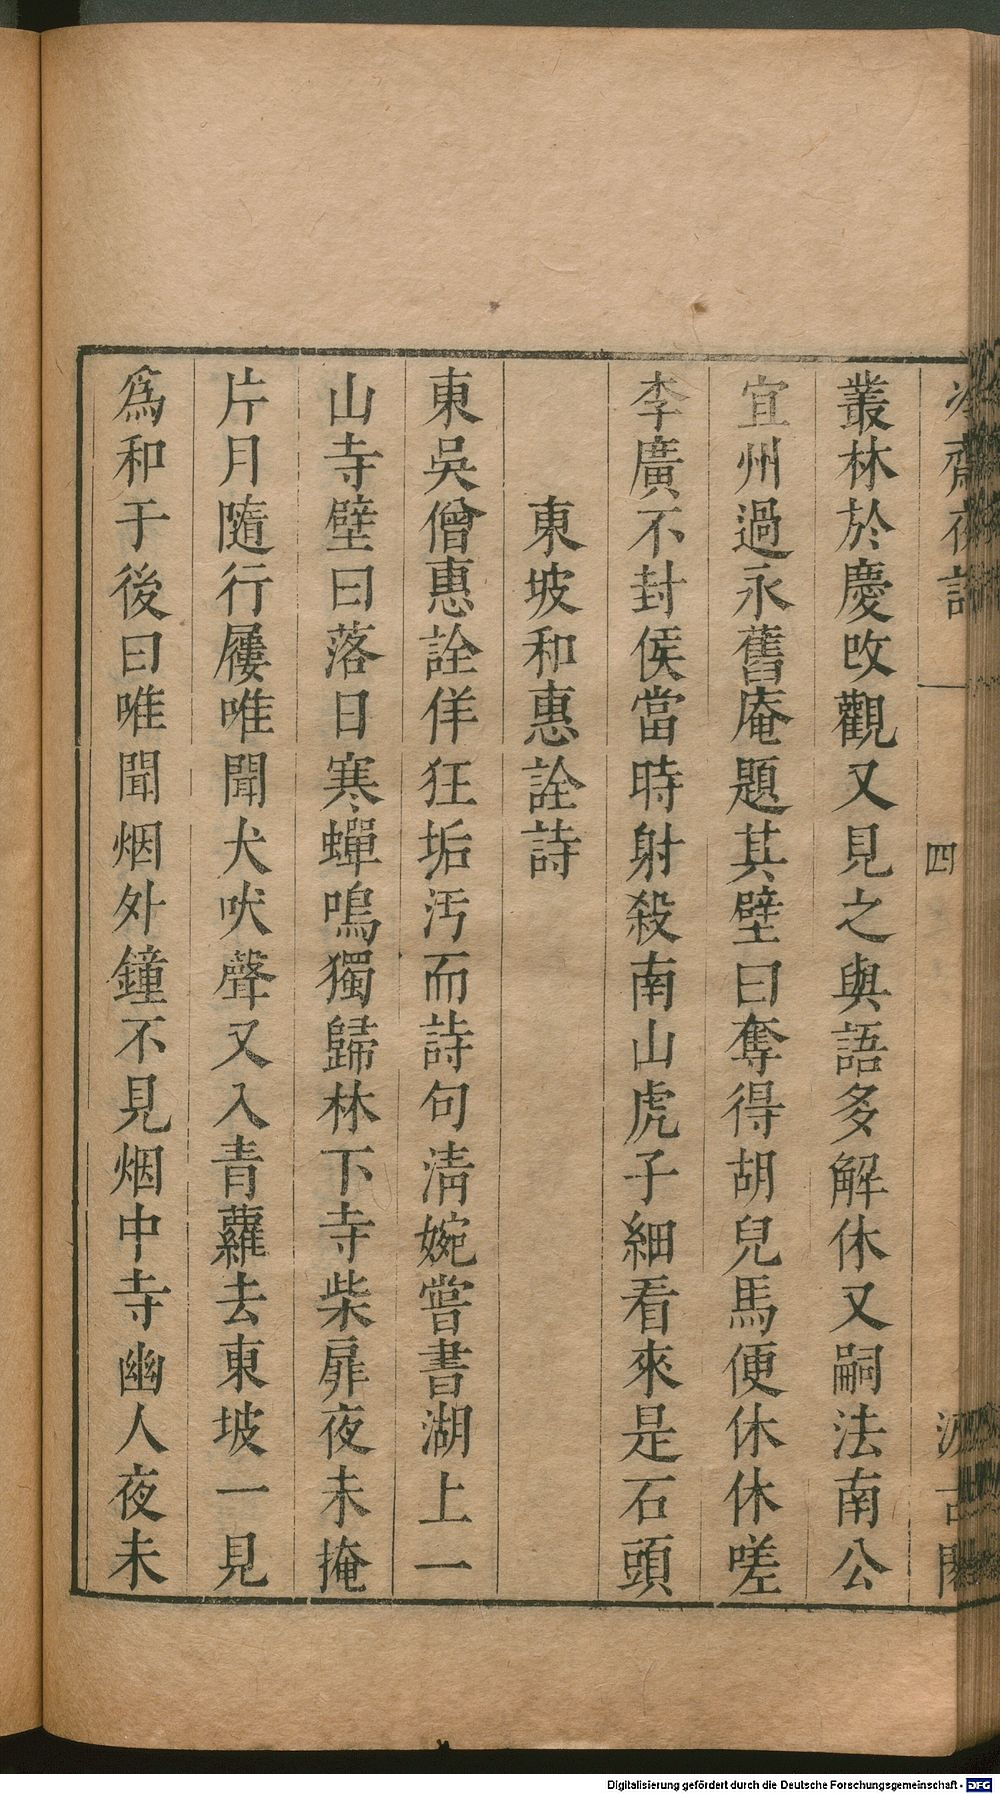 冷齋夜話 四 汲古閣
叢林於慶改觀又見之與語多解休又嗣法南公
宜州過永舊庵題其壁曰奪得胡兒馬便休休嗟
李廣不封侯當時射殺南山虎子細看來是石頭
東坡和惠詮詩
東吳僧惠詮佯狂垢汚而詩句清婉嘗書湖上一
山寺壁曰落日寒蟬鳴獨歸林下寺柴扉夜未掩
片月隨行屨唯聞犬吠聲又入青蘿去東坡一見
爲和于後曰唯聞烟外鐘不見烟中寺幽人夜未
Digitalisierung gefördert durch die Deutsche Forschungsgemeinschaft - DFG